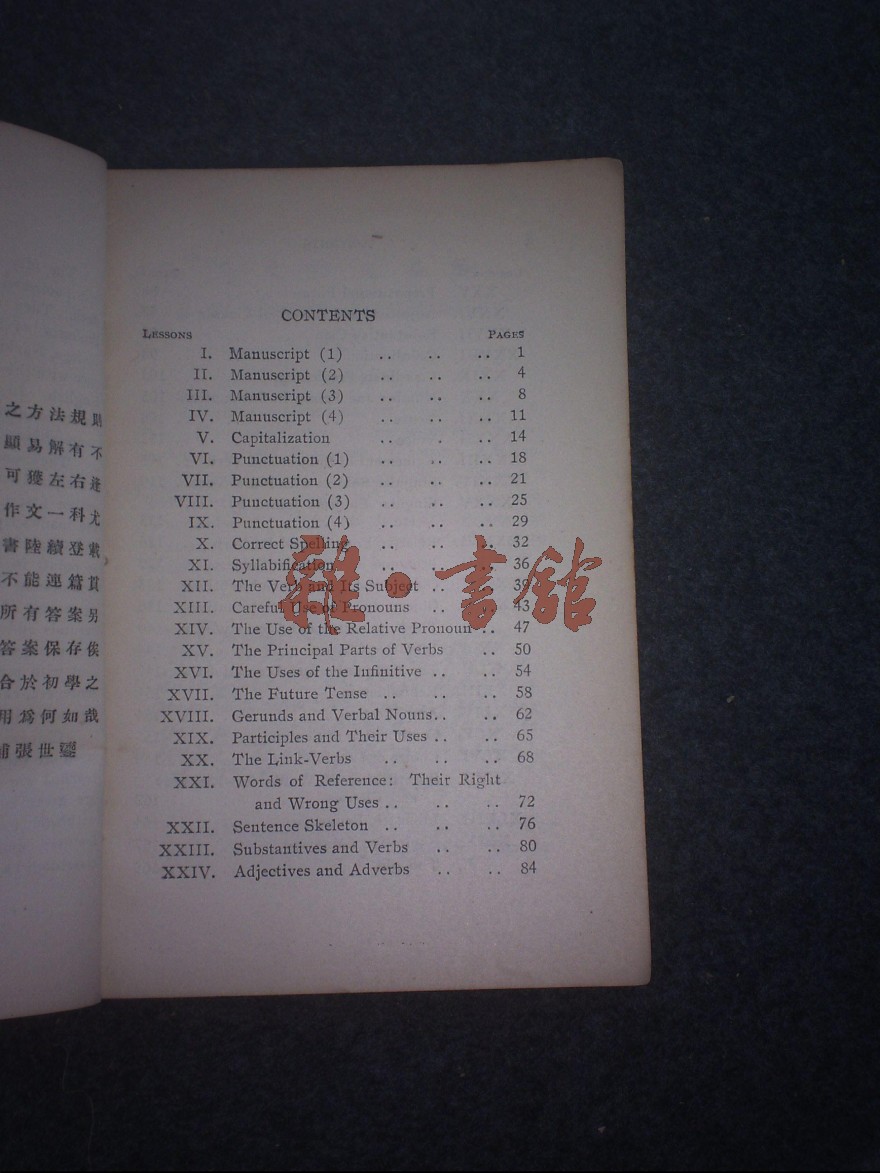 之方法規則
顯易解有不
可獲左右逢
作文一科尤
書陸續登載
不能連篇貫
所有答案另
答案保存俟
合於初學之
用爲何如哉
張世鎏
CONTENTS
LESSONS PAGES
I. Manuscript (1) .. .. .. 1
II. Manuscript (2) .. .. .. 4
III. Manuscript (3) .. .. .. 8
IV. Manuscript (4) .. .. .. 11
V. Capitalization .. . .. 14
VI. Punctuation (1) .. .. .. 18
VII. Punctuation (2) .. .. .. 21
VIII. Punctuation (3) .. .. .. 25
IX. Punctuation (4) .. .. .. 29
X. Correct Spelling .. .. .. 32
XI. Syllabification .. .. .. 36
XII. The Verb and Its Subject .. .. 39
XIII. Careful Use of Pronouns .. .. 43
XIV. The Use of the Relative Pronoun .. 47
XV. The Principal Parts of Verbs .. 50
XVI. The Uses of the Infinitive .. .. 54
XVII. The Future Tense .. .. .. 58
XVIII. Gerunds and Verbal Nouns .. .. 62
XIX. Participles and Their Uses .. .. 65
XX. The Link-Verbs .. .. .. 68
XXI. Words of Reference: Their Right
and Wrong Uses .. .. .. 72
XXII. Sentence Skeleton .. .. .. 76
XXIII. Substantives and Verbs .. .. 80
XXIV. Adjectives and Adverbs .. .. 84
雜·書館